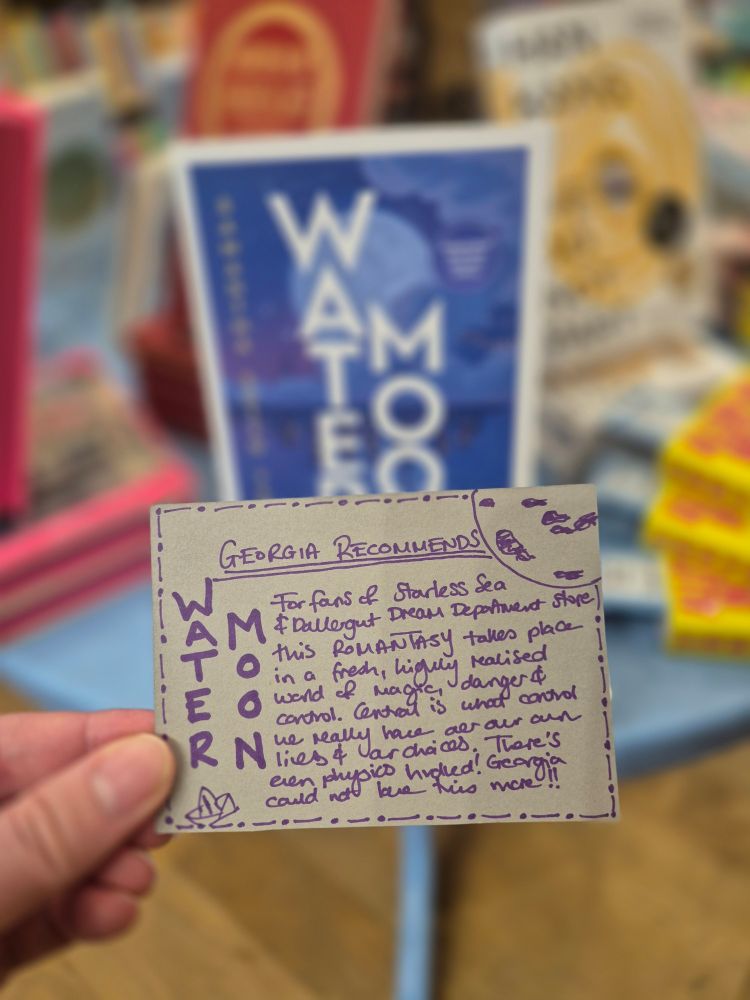 WATER
MOON
GEORGIA RECOMMENDS
WATER
MOON
For fans of Starless Sea
& Dallergut Dream Department Store
this ROMANTASY takes place
in a fresh, highly realised
world of magic, danger &
control. Central is what control
we really have over our own
lives & our choices. There's
even physics involved! Georgia
could not love this more!!